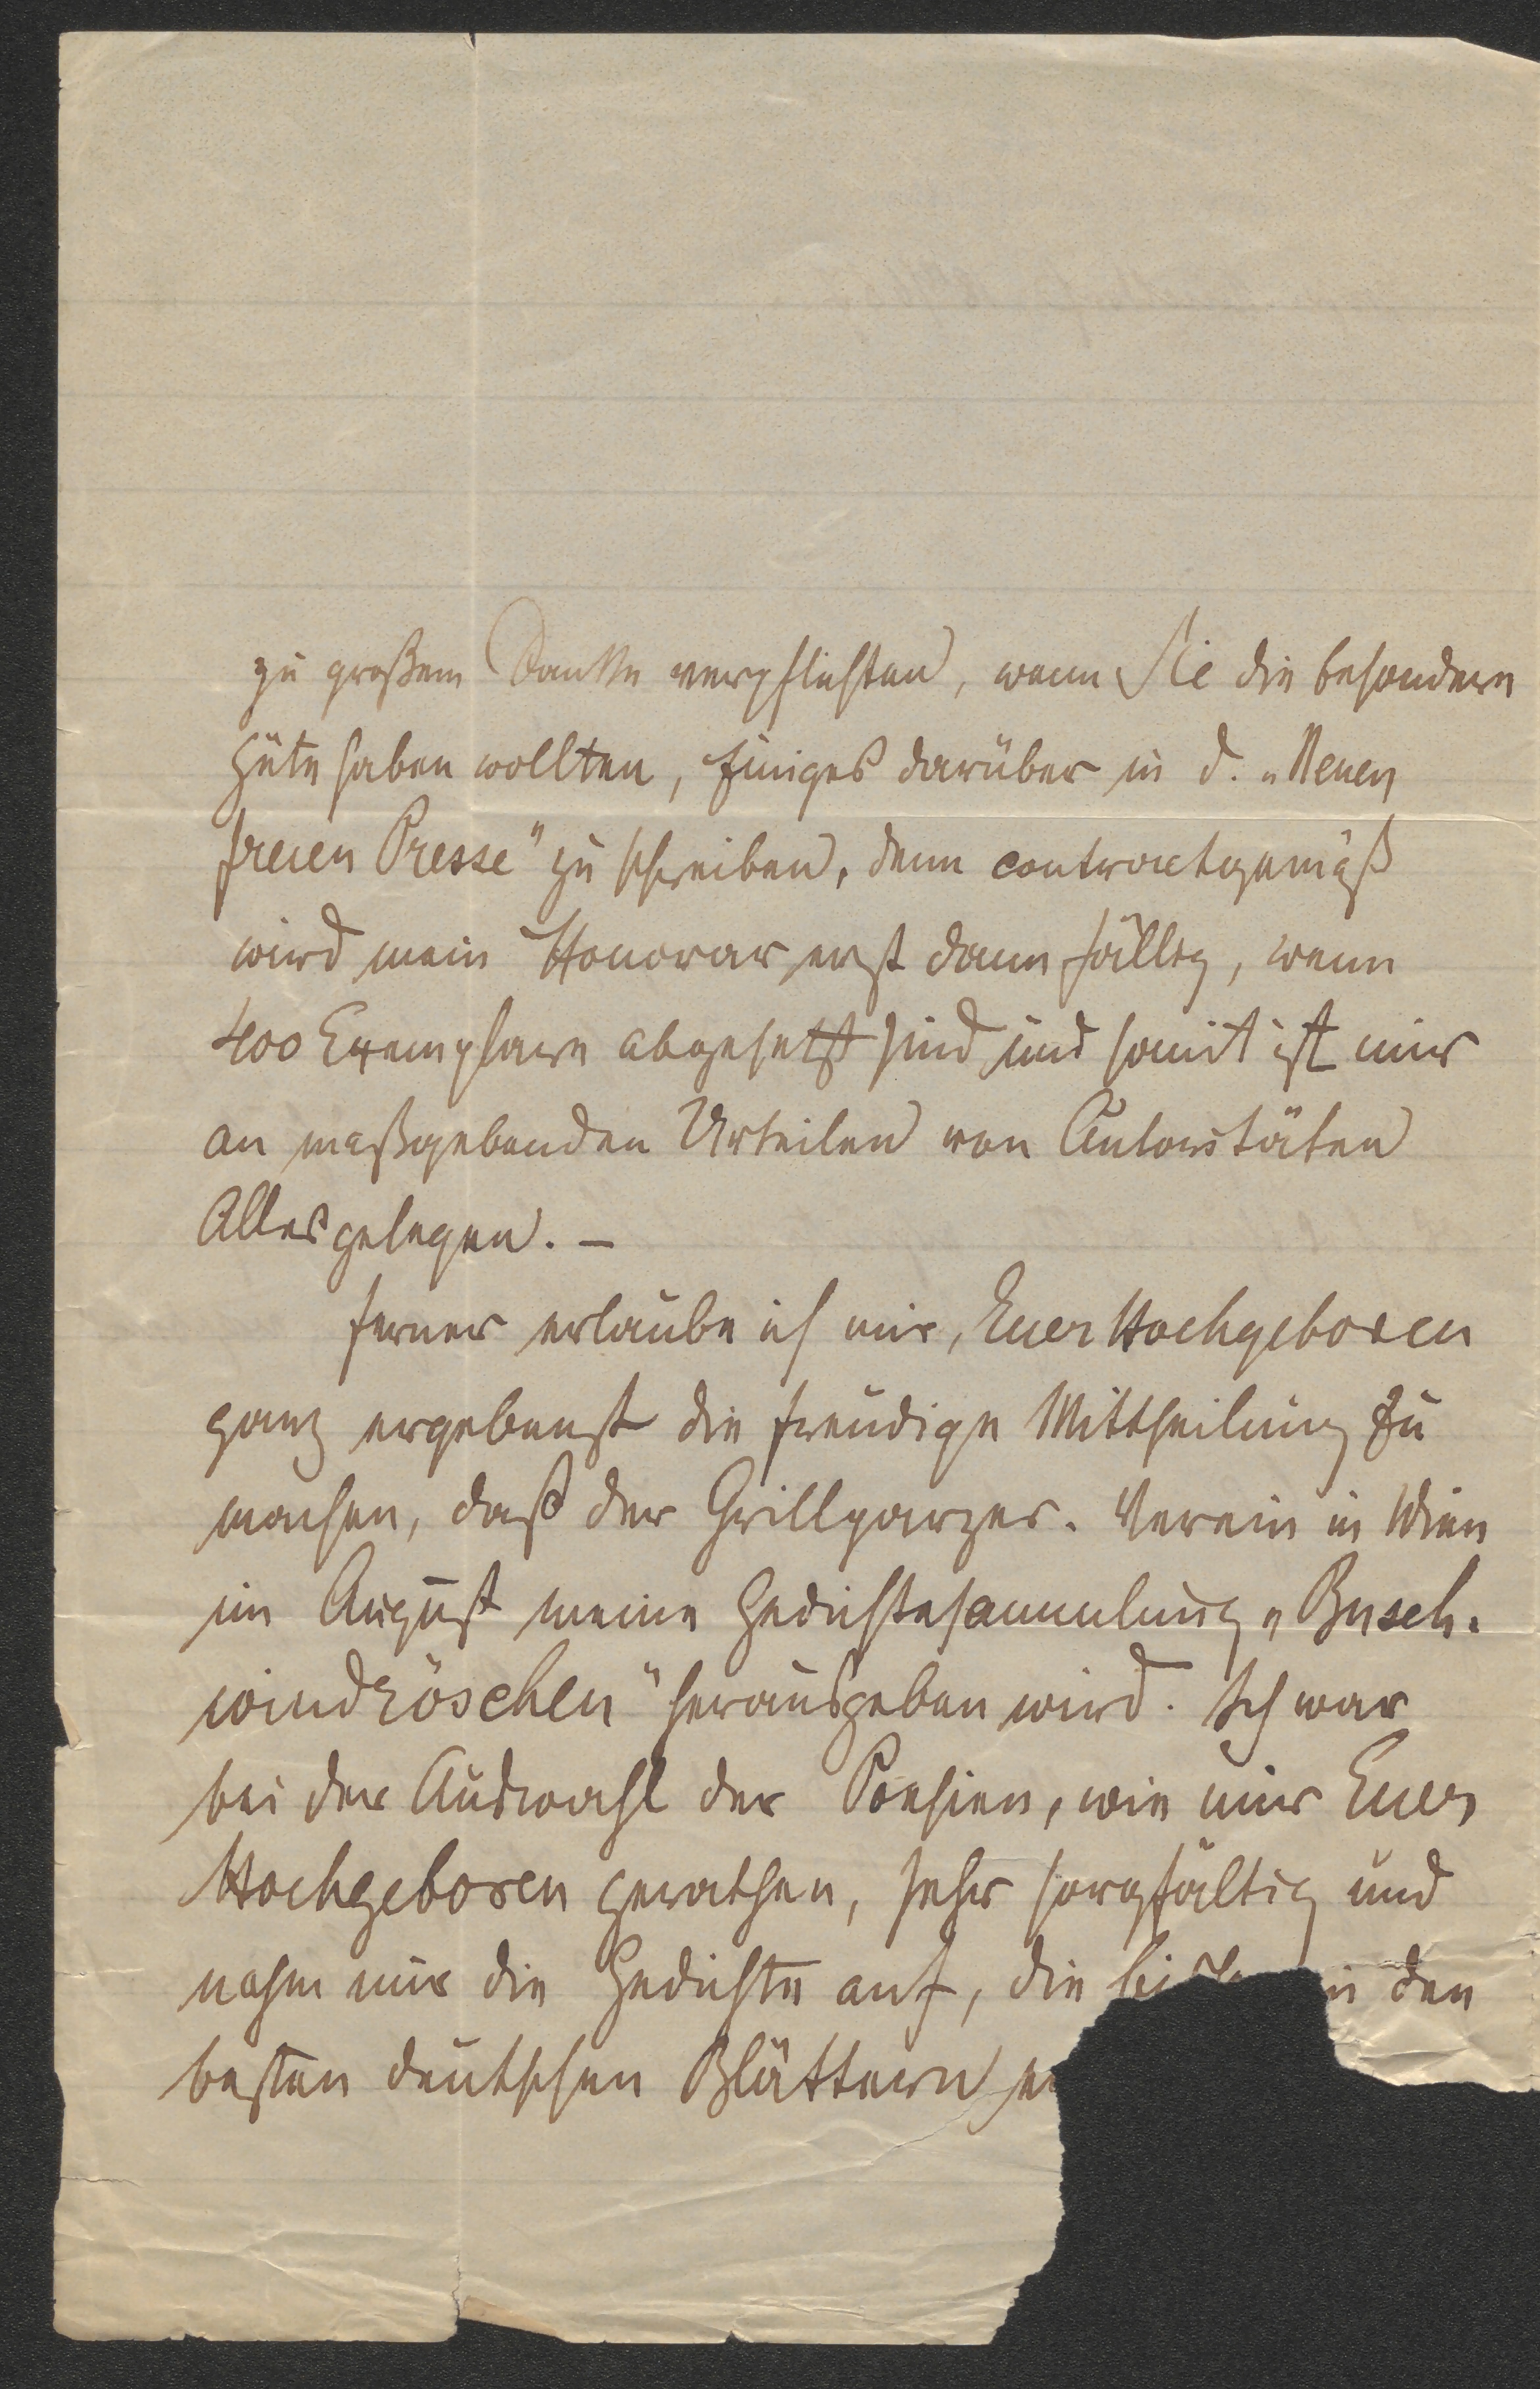 zu großem Danke verpflichten, wenn Sie die besondere
Güte haben wollten, Einiges darüber in d. „Neuen
freien Presse" zu schreiben, denn contractgemäß
wird mein Honorar erst dann fällig, wenn
400 Exemplare abgesetzt sind und somit ist mir
an maßgebenden Urteilen von Autoritäten
Alles gelegen. –
Ferner erlaube ich mir, Euer Hochgeboren
ganz ergebenst die freudige Mittheilung zu
machen, daß der Grillparzer-Verein in Wien
im August meine Gedichtesammlung „Busch-
windröschen" herausgeben wird. Ich war
bei der Auswahl der Poesien, wie mir Euer
Hochgeboren gerathen, sehr sorgfältig und
nahm nur die Gedichte auf, die in den
besten deutschen Blättern